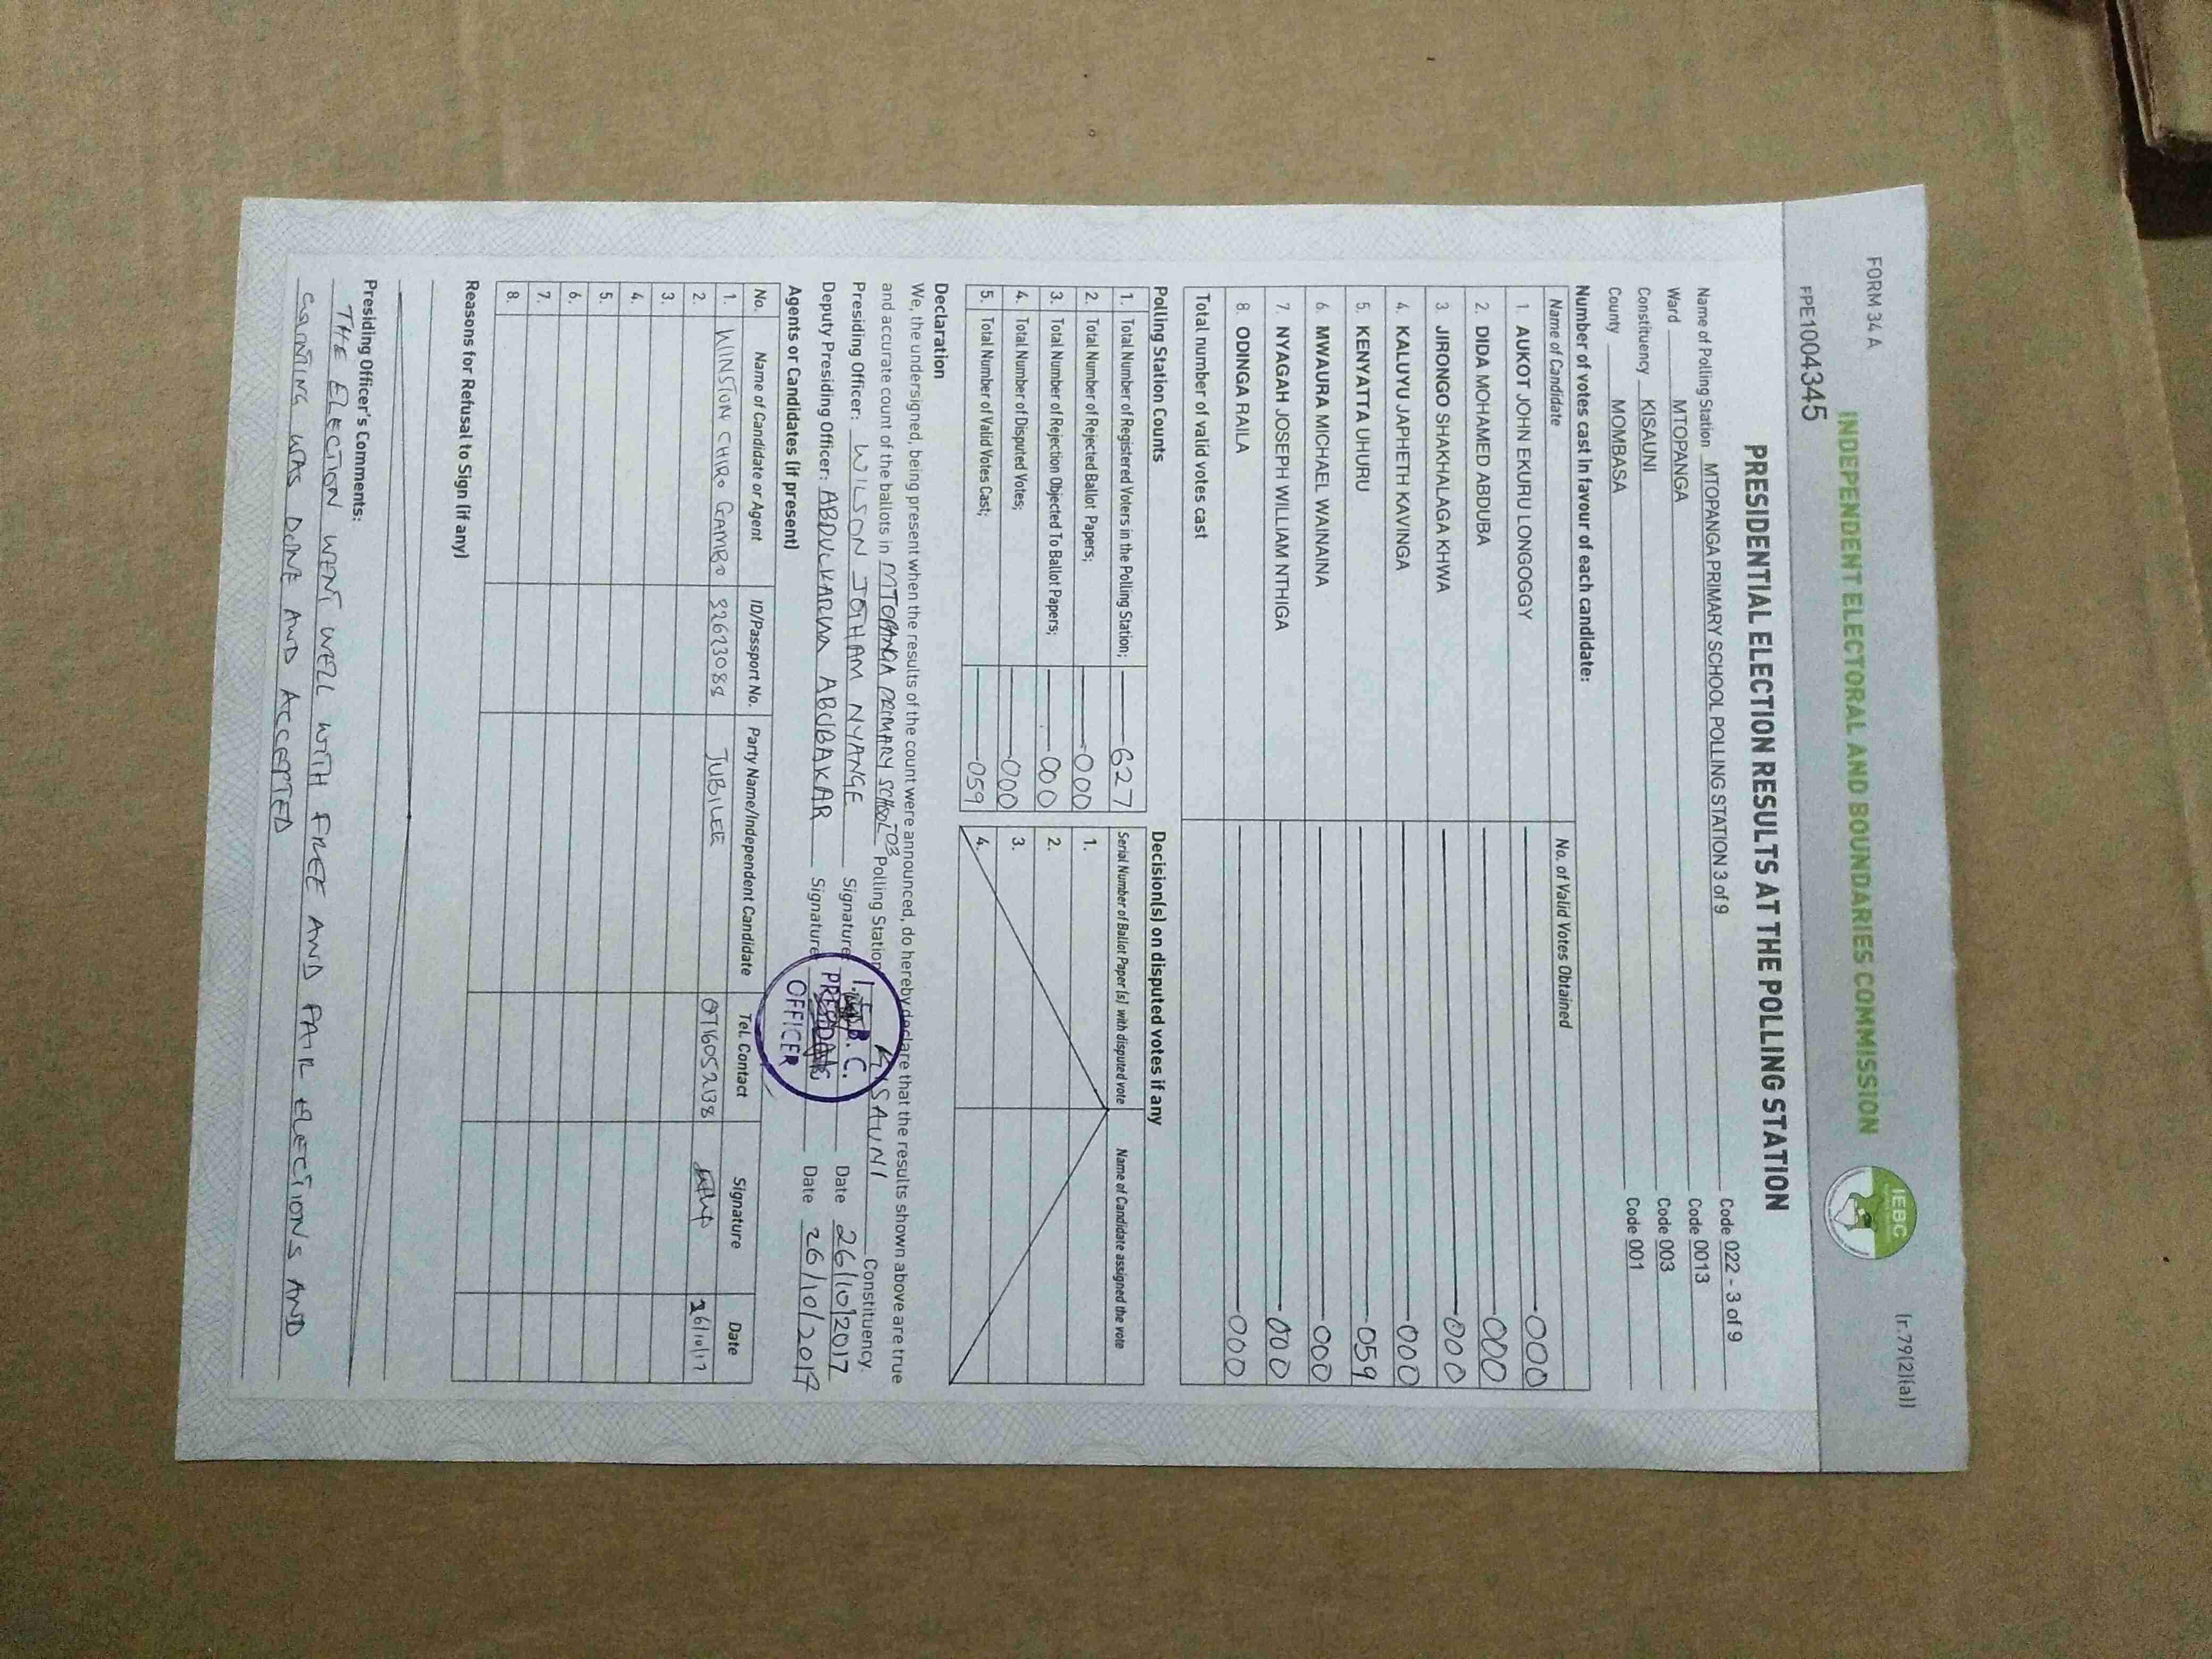 FORM 34 A
(r.79(2)(a))
INDEPENDENT ELECTORAL AND BOUNDARIES COMMISSION
IEBC
FPE1004345
PRESIDENTIAL ELECTION RESULTS AT THE POLLING STATION
Name of Polling Station MTOPANGA PRIMARY SCHOOL POLLING STATION 3 of 9 Code 022 - 3 of 9
Ward MTOPANGA Code 0013
Constituency KISAUNI Code 003
County MOMBASA Code 001
Number of votes cast in favour of each candidate:
Name of Candidate No. of Valid Votes Obtained
1. AUKOT JOHN EKURU LONGOGGY 000
2. DIDA MOHAMED ABDUBA 000
3. JIRONGO SHAKHALAGA KHWA 000
4. KALUYU JAPHETH KAVINGA 000
5. KENYATTA UHURU 059
6. MWAURA MICHAEL WAINAINA 000
7. NYAGAH JOSEPH WILLIAM NTHIGA 000
8. ODINGA RAILA 000
Total number of valid votes cast
Polling Station Counts
1. Total Number of Registered Voters in the Polling Station; 627
2. Total Number of Rejected Ballot Papers; 000
3. Total Number of Rejection Objected To Ballot Papers; 000
4. Total Number of Disputed Votes; 000
5. Total Number of Valid Votes Cast; 059
Decision(s) on disputed votes if any
Serial Number of Ballot Paper (s) with disputed vote Name of Candidate assigned the vote
1.
2.
3.
4.
Declaration
We, the undersigned, being present when the results of the count were announced, do hereby declare that the results shown above are true
and accurate count of the ballots in MTOPANGA PRIMARY SCHOOL - 03 Polling Station KISAUNI Constituency.
Presiding Officer: WILSON JOTHAM NYANGE Signature Date 26/10/2017
Deputy Presiding Officer: ABDULKARIM ABUBAKAR Signature Date 26/10/2017
I.E.B.C.
PRESIDING
OFFICER
Agents or Candidates (if present)
No. Name of Candidate or Agent ID/Passport No. Party Name/Independent Candidate Tel. Contact Signature Date
1. WINSTON CHIRO GAMBO 32623088 JUBILEE 0716052138 26/10/17
2.
3.
4.
5.
6.
7.
8.
Reasons for Refusal to Sign (if any)
Presiding Officer's Comments:
THE ELECTION WENT WELL WITH FREE AND FAIR ELECTIONS AND
COUNTING WAS DONE AND ACCEPTED